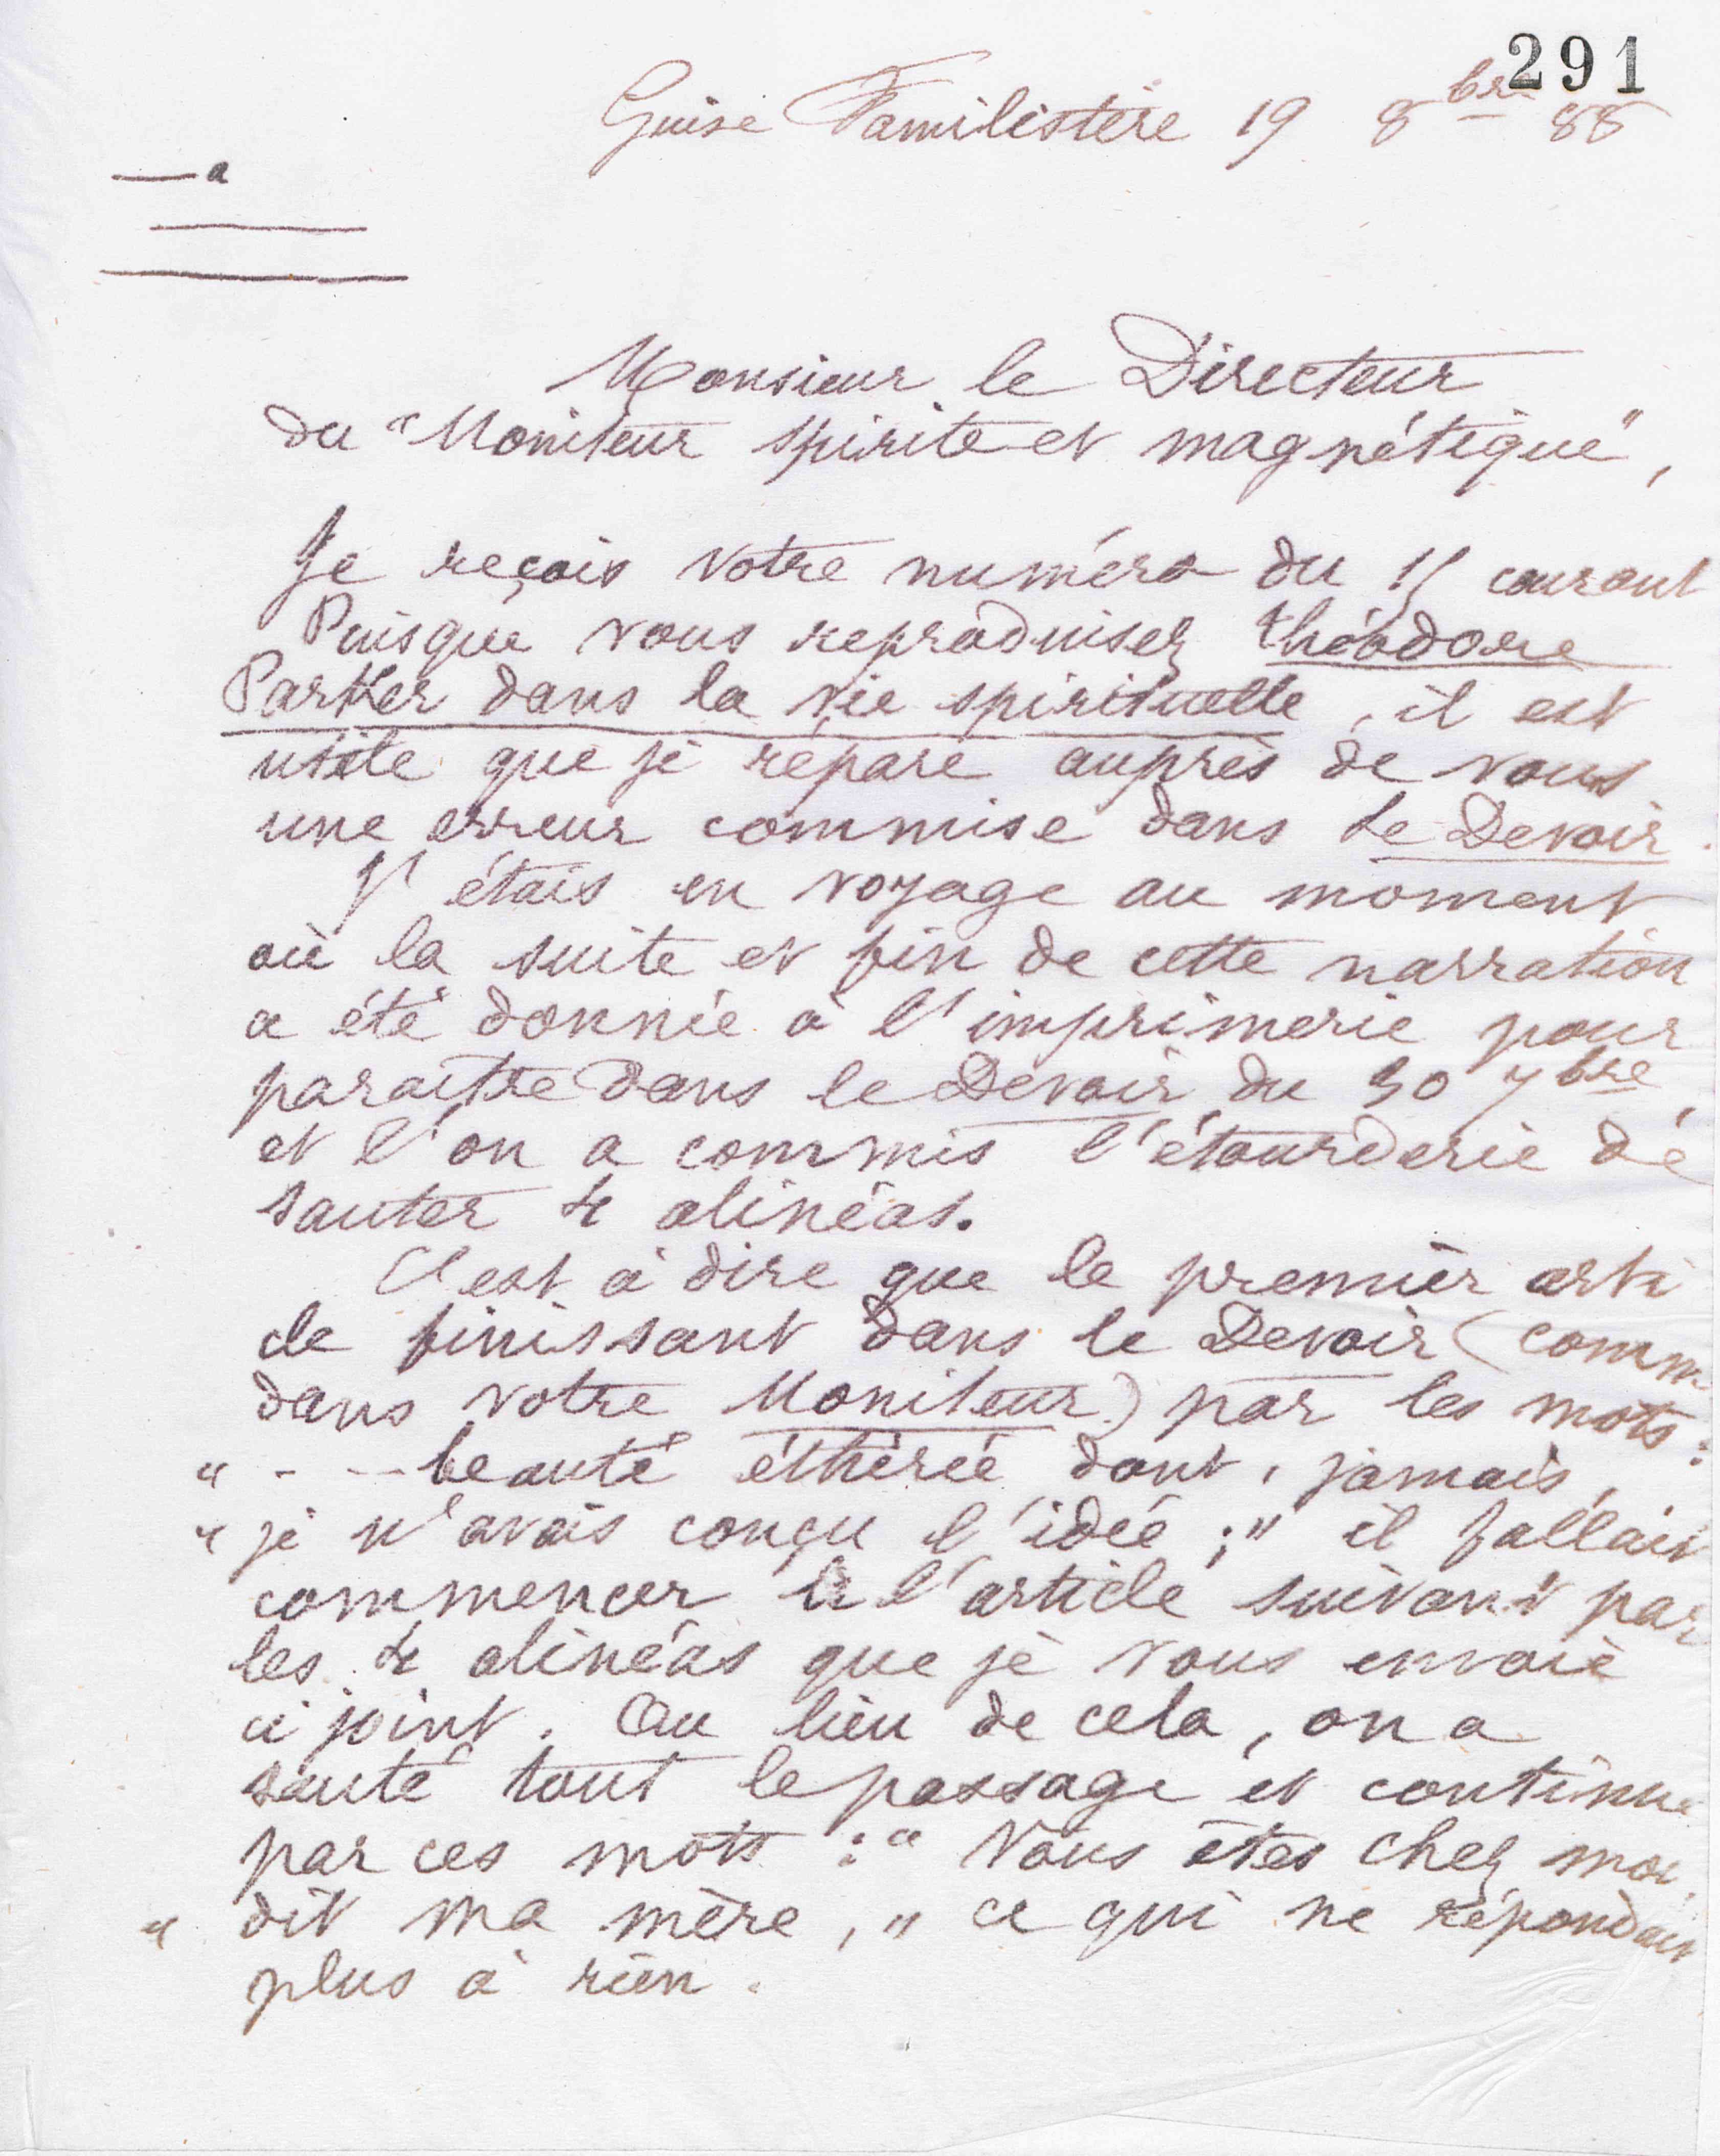 291
Guise Familistère 19 8bre 88
a
Monsieur le Directeur
du "Moniteur spirite et magnétique",
Je reçois votre numéro du 15 courant
Puisque vous reproduisez théodore
Parker dans la vie spirituelle, il est
utile que je répare auprès de vous
une erreur commise dans le Devoir.
J'étais en voyage au moment
où la suite et fin de cette narration
a été donnée à l'imprimerie pour
paraître dans le Devoir du 30 7bre,
et l'on a commis l'étourderie de
sauter 4 alinéas.
C'est à dire que le premier arti
cle finissant dans le Devoir (comm
dans votre Moniteur) par les mots :
" - -- beauté éthérée dont, jamais,
" je n'avais conçu l'idée ;" il fallait
commencer l'article suivant par
les 4 alinéas que je vous envoie
ci joint. Au lieu de cela, on a
sauté tout le passage et continué
par ces mots : " Vous êtes chez moi,
" dit ma mère, " ce qui ne répondait
plus à rien.